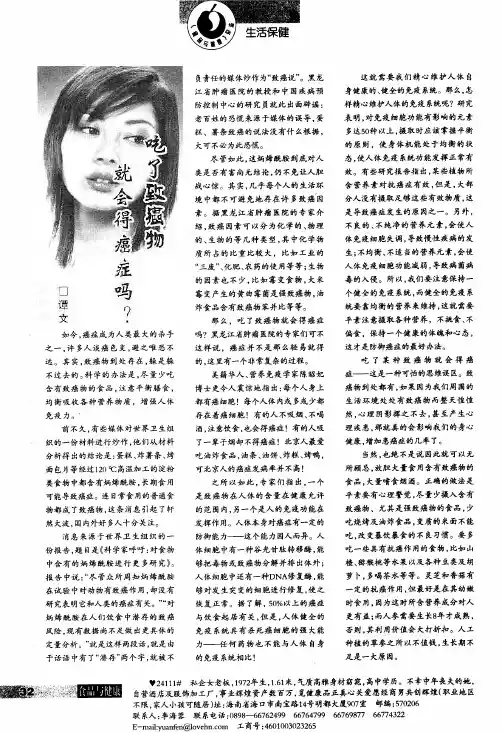 生活保健
吃了致癌物
就会得癌症吗?
□谭文
如今,癌症成为人类最大的杀手
之一,许多人谈癌色变,避之唯恐不
远。其实,致癌物到处存在,躲是躲
不过去的。科学的办法是,尽量少吃
含有致癌物的食品,注意平衡膳食,
均衡吸收各种营养物质,增强人体
免疫力。
前不久,有些媒体对世界卫生组
织的一份材料进行炒作,他们从材料
分析得出的结论是:蛋糕、炸薯条、烤
面包片等经过120℃高温加工的淀粉
类食物中都含有炳烯酰胺,长期食用
可能导致癌症。连日常食用的普通食
物都成了致癌物,这条消息引起了轩
然大波,国内外好多人十分关注。
消息来源于世界卫生组织的一
份报告,题目是《科学家呼吁:对食物
中含有的炳烯酰胺进行更多研究》。
报告中说:“尽管众所周知炳烯酰胺
在试验中对动物有致癌作用,却没有
研究表明它和人类的癌症有关。”“对
炳烯酰胺在人们饮食中潜存的致癌
风险,现有数据尚不足做出更具体的
定量分析。”就是这样两段话,就是由
于话语中有了“潜存”两个字,就被不
负责任的媒体炒作为“致癌说”。黑龙
江省肿瘤医院的教授和中国疾病预
防控制中心的研究员就此出面辟谣:
老百姓的恐慌来源于媒体的误导,蛋
糕、薯条致癌的说法没有什么根据,
大可不必为此恐慌。
尽管如此,这炳烯酰胺到底对人
类是否有害尚无结论,仍不免让人胆
战心惊。其实,几乎每个人的生活环
境中都不可避免地存在许多致癌因
素。据黑龙江省肿瘤医院的专家介
绍,致癌因素可以分为化学的、物理
的、生物的等几种类型,其中化学物
质所占的比重比较大,比如工业的
“三废”、化肥、农药的使用等等;生物
的因素也不少,比如霉变食物,大米
霉变产生的黄曲霉菌是强致癌物,油
炸食品含有致癌物苯并比等等。
那么,吃了致癌物就会得癌症
吗?黑龙江省肿瘤医院的专家们可不
这样说,癌症并不是那么轻易就得
的,这里有一个非常复杂的过程。
美籍华人、营养免疫学家陈昭妃
博士更令人震惊地指出:每个人身上
都有癌细胞!每个人体内或多或少都
存在着癌细胞!有的人不吸烟、不喝
酒,注意饮食,也会得癌症!有的人吸
了一辈子烟却不得癌症!北京人最爱
吃油炸食品,油条、油饼、炸糕、烤鸭,
可北京人的癌症发病率并不高!
之所以如此,专家们指出,一个
是致癌物在人体的含量在健康允许
的范围内,另一个是人的免疫功能在
发挥作用。人体本身对癌症有一定的
防御能力——这个能力因人而异。人
体细胞中有一种谷光甘肽转移酶,能
够把毒物或致癌物分解并排出体外;
人体细胞中还有一种DNA修复酶,能
够对发生突变的细胞进行修复,使之
恢复正常。据了解,50%以上的癌症
与饮食起居有关,但是,人体健全的
免疫系统具有杀死癌细胞的强大能
力——任何药物也不能与人体自身
的免疫系统相比!
这就需要我们精心维护人体自
身健康的、健全的免疫系统。那么,怎
样精心维护人体的免疫系统呢?研究
表明,对免疫细胞功能有影响的元素
多达50种以上,摄取时应该掌握平衡
的原则,使身体机能处于均衡的状
态,使人体免疫系统功能发挥正常有
效。有些研究报告指出,某些植物所
含营养素对抗癌症有效,但是,大部
分人没有摄取足够这些有效物质,这
是导致癌症发生的原因之一。另外,
不良的、不纯净的营养元素,会使人
体免疫细胞失调,导致慢性疾病的发
生;不均衡、不适当的营养元素,会使
人体免疫细胞功能减弱,导致病菌病
毒的入侵。所以,我们要注意保持一
个健全的免疫系统,而健全的免疫系
统要靠均衡的营养来维持,这就需要
平素注意摄取各种营养,不挑食、不
偏食,保持一个健康的体魄和心态,
这才是防御癌症的最好办法。
吃了某种致癌物就会得癌
症——这是一种可怕的思维误区。致
癌物到处都有,如果因为我们周围的
生活环境处处有致癌物而整天惶惶
然,心理阴影挥之不去,甚至产生心
理疾患,那就真的会影响我们的身心
健康,增加患癌症的几率了。
当然,也绝不是说因此就可以无
所顾忌,放胆大量食用含有致癌物的
食品,大量嗜食烟酒。正确的做法是
平素要有心理警觉,尽量少摄入含有
致癌物、尤其是强致癌物的食品,少
吃烧烤及油炸食品,变质的米面不能
吃,改变暴饮暴食的不良习惯。要多
吃一些具有抗癌作用的食物,比如山
楂、猕猴桃等水果以及各种豆类及胡
萝卜,多喝茶水等等。灵芝和香菇有
一定的抗癌作用,但最好是在其幼嫩
时食用,因为这时所含营养成分对人
更有益;而人参需要生长8年才成熟,
否则,其利用价值会大打折扣。人工
种植的草参之所以不值钱,生长期不
足是一大原因。
92 食品与健康
♥24111# 私企女老板,1972年生,1.61米,气质高雅身材窈窕,高中学历。不幸中年丧夫的她,
自营酒店及服饰加工厂,事业辉煌资产数百万,觅健康品正真心关爱愿经商男共创辉煌(职业地区
不限,家人小孩可随居)址:海南省海口市南宝路14号明都大厦907室 邮编:570206
联系人:李海蓉 联系电话:0898—66762499 66764799 66769877 66774322
E-mail:yuanfen@lovehn.com 工商号:4601003023265